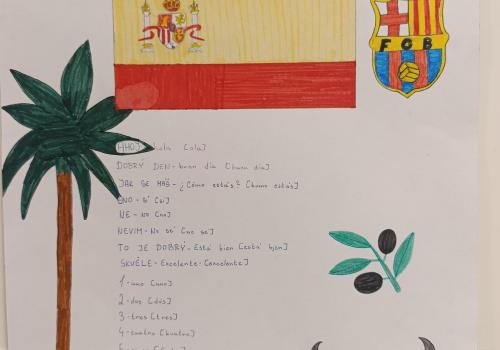 FCB
AHOJ hola [ola]
DOBRÝ DEN - buen día [buen día]
JAK SE MÁŠ - ¿Cómo estás? [komo estás]
ANO - sí [sí]
NE - no [no]
NEVÍM - No sé [no sé]
TO JE DOBRÝ - Está bien [está bjen]
SKVĚLE - Excelente -
1 - uno [uno]
2 - dos [dos]
3 - tres [tres]
4 - cuatro [kuatro]